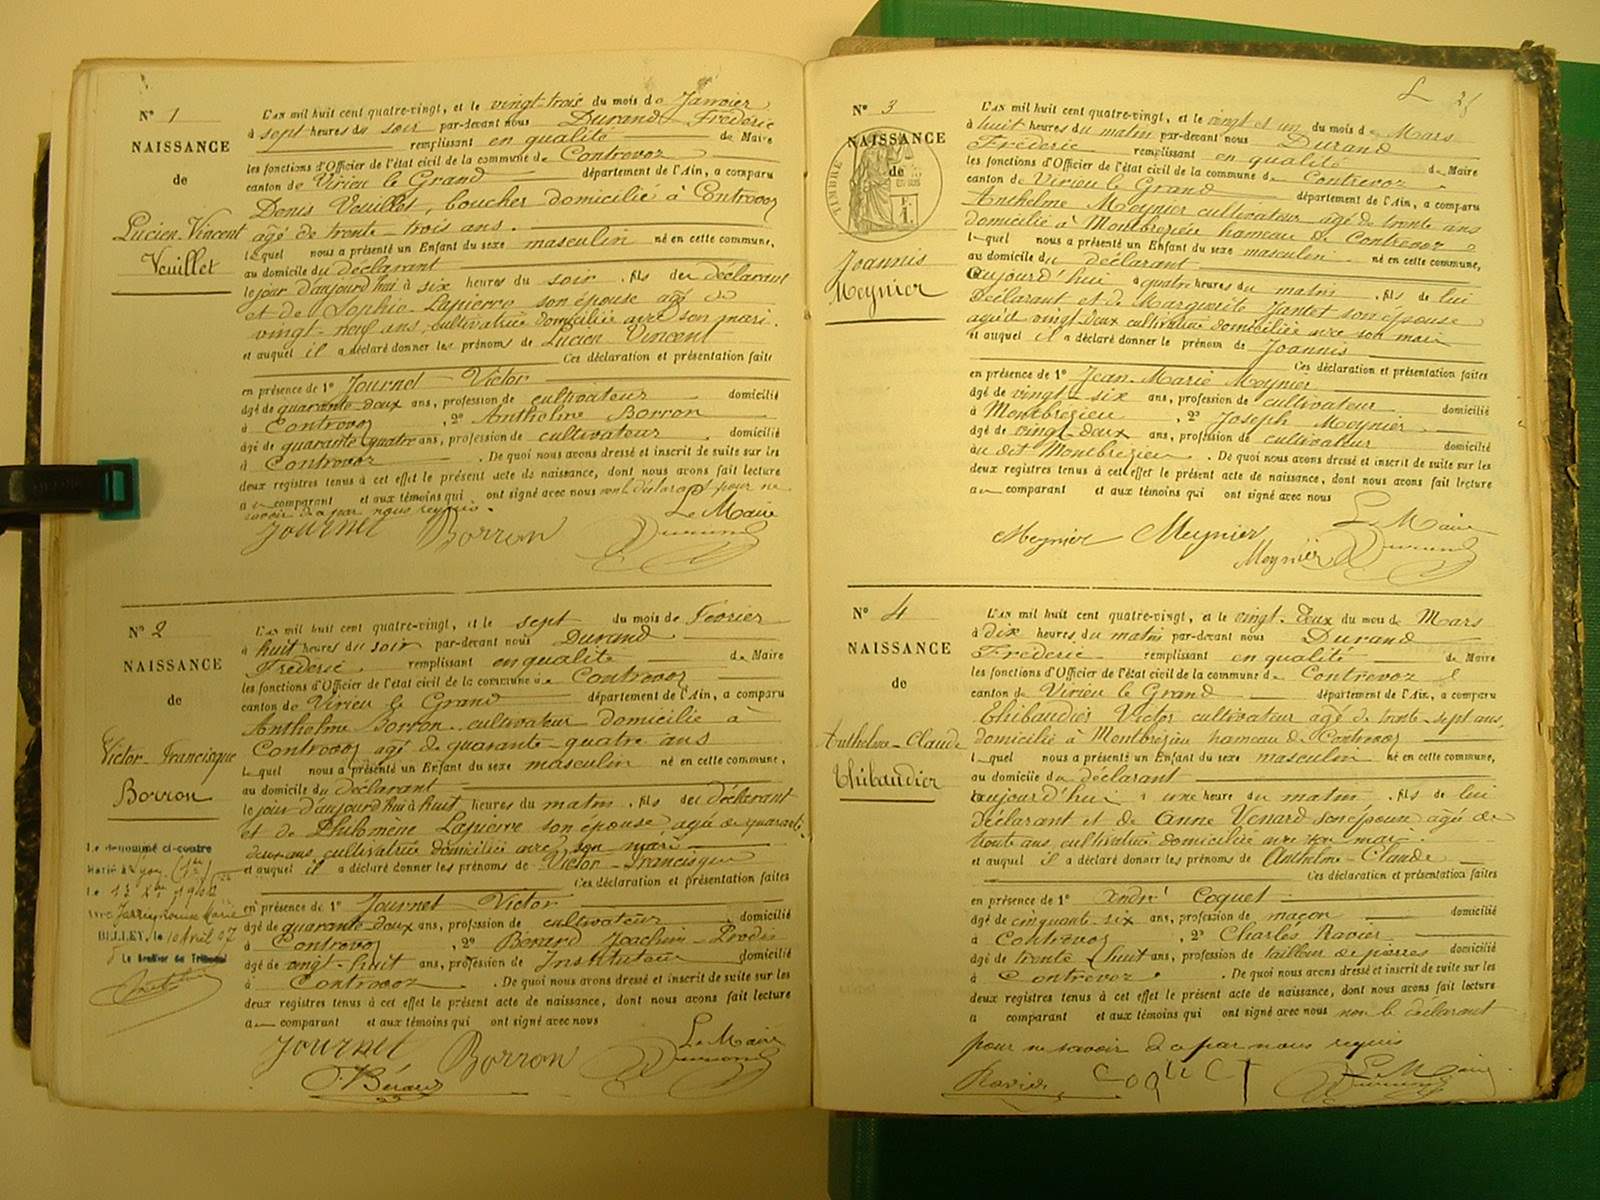 N° 1
NAISSANCE
de
Lucien-Vincent
Veuillet
L'an mil huit cent quatre-vingt, et le vingt-trois du mois de Janvier
à sept heures du soir par-devant nous Durand Frédéric
remplissant en qualité de Maire
les fonctions d'Officier de l'état civil de la commune de Contrevoz
canton de Virieu le Grand département de l'Ain, a comparu
Denis Veuillet, boucher domicilié à Contrevoz
âgé de trente-trois ans.
lequel nous a présenté un Enfant du sexe masculin né en cette commune,
au domicile du déclarant
le jour d'aujourd'hui à six heures du soir, fils du déclarant
et de Sophie Lapierre son épouse agée de
vingt-neuf ans, cultivatrice domiciliée avec son mari.
et auquel il a déclaré donner les prénoms de Lucien Vincent
Ces déclaration et présentation faites
en présence de 1° Journet Victor
âgé de quarante-deux ans, profession de cultivateur domicilié
à Contrevoz, 2° Anthelme Borron
âgé de quarante quatre ans, profession de cultivateur domicilié
à Contrevoz. De quoi nous avons dressé et inscrit de suite sur les
deux registres tenus à cet effet le présent acte de naissance, dont nous avons fait lecture
au comparant et aux témoins qui ont signé avec nous non le déclarant pour ne
savoir de ce par nous requis.
Journet Borron Le Maire
Durand
N° 2
NAISSANCE
de
Victor-Francisque
Borron
L'an mil huit cent quatre-vingt, et le sept du mois de Février
à huit heures du soir par-devant nous Durand
Frédéric remplissant en qualité de Maire
les fonctions d'Officier de l'état civil de la commune de Contrevoz
canton de Virieu le Grand département de l'Ain, a comparu
Anthelme Borron cultivateur domicilié à
Contrevoz agé de quarante-quatre ans
lequel nous a présenté un Enfant du sexe masculin né en cette commune,
au domicile du déclarant
le jour d'aujourd'hui à huit heures du matin, fils du déclarant
et de Philomène Lapierre son épouse, agée de quarante
deux ans, cultivatrice domiciliée avec son mari
et auquel il a déclaré donner les prénoms de Victor-Francisque
Ces déclaration et présentation faites
en présence de 1° Journet Victor
âgé de quarante-deux ans, profession de cultivateur domicilié
à Contrevoz, 2° Berard Joachim-Prodis
âgé de vingt-huit ans, profession de Instituteur domicilié
à Contrevoz. De quoi nous avons dressé et inscrit de suite sur les
deux registres tenus à cet effet le présent acte de naissance, dont nous avons fait lecture
au comparant et aux témoins qui ont signé avec nous
Journet Borron Le Maire
J. Bérard Durand
Le dénommé ci-contre
Marié à Lyon
Le 13 Xbre
avec Louise Marie
BELLEY, le 10 Avril 07
Le Greffier du Tribunal
25
N° 3
NAISSANCE
de
TIMBRE
Joannis
Meynier
L'an mil huit cent quatre-vingt, et le vingt et un du mois de Mars
à huit heures du matin par-devant nous Durand
Frédéric remplissant en qualité de Maire
les fonctions d'Officier de l'état civil de la commune de Contrevoz
canton de Virieu le Grand département de l'Ain, a comparu
Anthelme Meynier cultivateur agé de trente ans
domicilié à Montbrezieu hameau de Contrevoz
lequel nous a présenté un Enfant du sexe masculin né en cette commune,
au domicile du déclarant
aujourd'hui à quatre heures du matin, fils de lui
déclarant et de Marguerite Jantet son épouse
agée vingt-deux cultivatrice domiciliée avec son mari
et auquel il a déclaré donner le prénom de Joannis
Ces déclaration et présentation faites
en présence de 1° Jean-Marie Meynier
âgé de vingt-six ans, profession de cultivateur domicilié
à Montbrezieu, 2° Joseph Meynier
âgé de vingt-deux ans, profession de cultivateur domicilié
au dit Montbrezieu. De quoi nous avons dressé et inscrit de suite sur les
deux registres tenus à cet effet le présent acte de naissance, dont nous avons fait lecture
au comparant et aux témoins qui ont signé avec nous
Meynier Meynier Le Maire
Meynier Durand
N° 4
NAISSANCE
de
Anthelme-Claude
Thibaudier
L'an mil huit cent quatre-vingt, et le vingt-deux du mois de Mars
à dix heures du matin par-devant nous Durand
Frédéric remplissant en qualité de Maire
les fonctions d'Officier de l'état civil de la commune de Contrevoz
canton de Virieu le Grand département de l'Ain, a comparu
Thibaudier Victor cultivateur agé de trente-sept ans,
domicilié à Montbrezieu hameau de Contrevoz
lequel nous a présenté un Enfant du sexe masculin né en cette commune,
au domicile du déclarant
aujourd'hui à une heure du matin, fils de lui
déclarant et de Anne Venard son épouse agée de
trente ans, cultivatrice domiciliée avec son mari
et auquel il a déclaré donner les prénoms de Anthelme-Claude
Ces déclaration et présentation faites
en présence de 1° André Coquet
âgé de cinquante-six ans, profession de maçon domicilié
à Contrevoz, 2° Charles Ravier
âgé de trente-huit ans, profession de tailleur de pierres domicilié
à Contrevoz. De quoi nous avons dressé et inscrit de suite sur les
deux registres tenus à cet effet le présent acte de naissance, dont nous avons fait lecture
a comparant et aux témoins qui ont signé avec nous non le déclarant
pour ne savoir de ce par nous requis
Ravier Coquet Le Maire
Durand